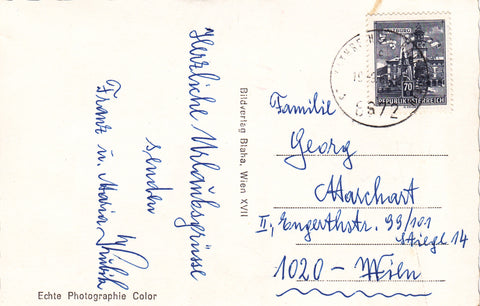 Herzliche Urlaubsgrüsse
senden
Franz u. Maria
Bildverlag Blaha, Wien XVII
70
REPUBLIK ÖSTERREICH
6672
Familie
Georg
Marchart
II, Engerthstr. 99/101
Stiege 14
1020 - Wien
Echte Photographie Color